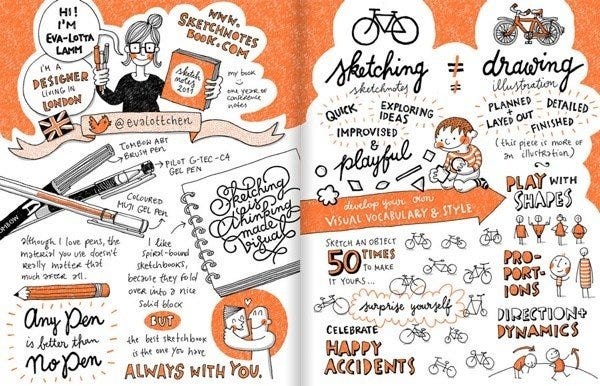 HI!
I'M
EVA-LOTTA
LAMM
I'M A
DESIGNER
LIVING IN
LONDON
WWW.
SKETCHNOTES
BOOK.COM
sketch
notes
2011
my book
one year of
conference
notes
@evalottchen
TOMBOW ABT
BRUSH PEN
PILOT G-TEC-C4
GEL PEN
COLOURED
MUJI GEL PEN
TOMBOW
Sketching
is
Thinking
made
Visual
although I love pens, the
material you use doesn't
really matter that
much after all.
I like
spiral-bound
sketchbooks,
because they fold
over into a nice
solid block
Any Pen
is better than
No Pen
BUT
the best sketchbook
is the one you have
ALWAYS WITH YOU.
sketching
sketchnotes
≠
drawing
illustration
QUICK
EXPLORING
IDEAS
IMPROVISED
&
playful
PLANNED
&
LAYED OUT
DETAILED
FINISHED
(this piece is more of
an illustration)
develop your own
VISUAL VOCABULARY & STYLE
SKETCH AN OBJECT
50 TIMES
TO MAKE
IT YOURS...
surprise yourself
CELEBRATE
HAPPY
ACCIDENTS
PLAY WITH
SHAPES
PRO-
PORT-
IONS
DIRECTION+
DYNAMICS